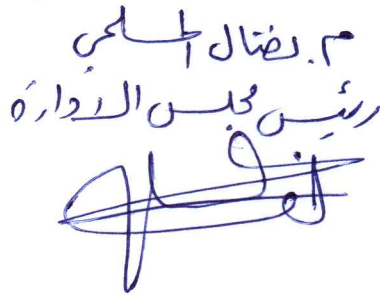 م. نضال المسلخي
رئيس مجلس الادارة